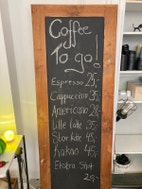 Coffee
To go!
Espresso 25,-
Cappuccino 35,-
Americano 28,-
Lille latte 35,-
Stor latte 45,-
Kakao 45,-
Ekstra Shot